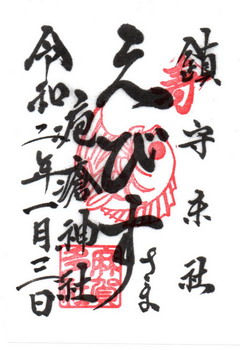 鎮守末社
えびす
さま
疱瘡神社
令和二年一月三日